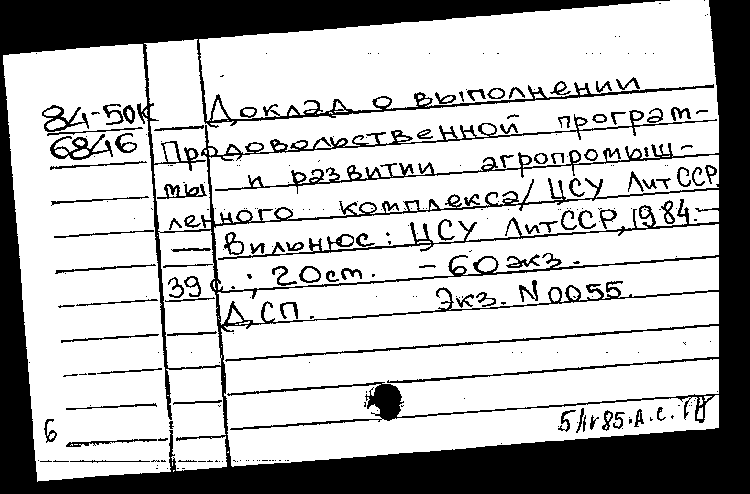 84-50К
6846
Доклад о выполнении
Продовольственной програм-
мы и развитии агропромыш-
ленного комплекса/ ЦСУ ЛитССР.
— Вильнюс: ЦСУ ЛитССР, 1984.—
39 с.; 20 см. – 60 экз.
ДСП. Экз. N 0055.
6